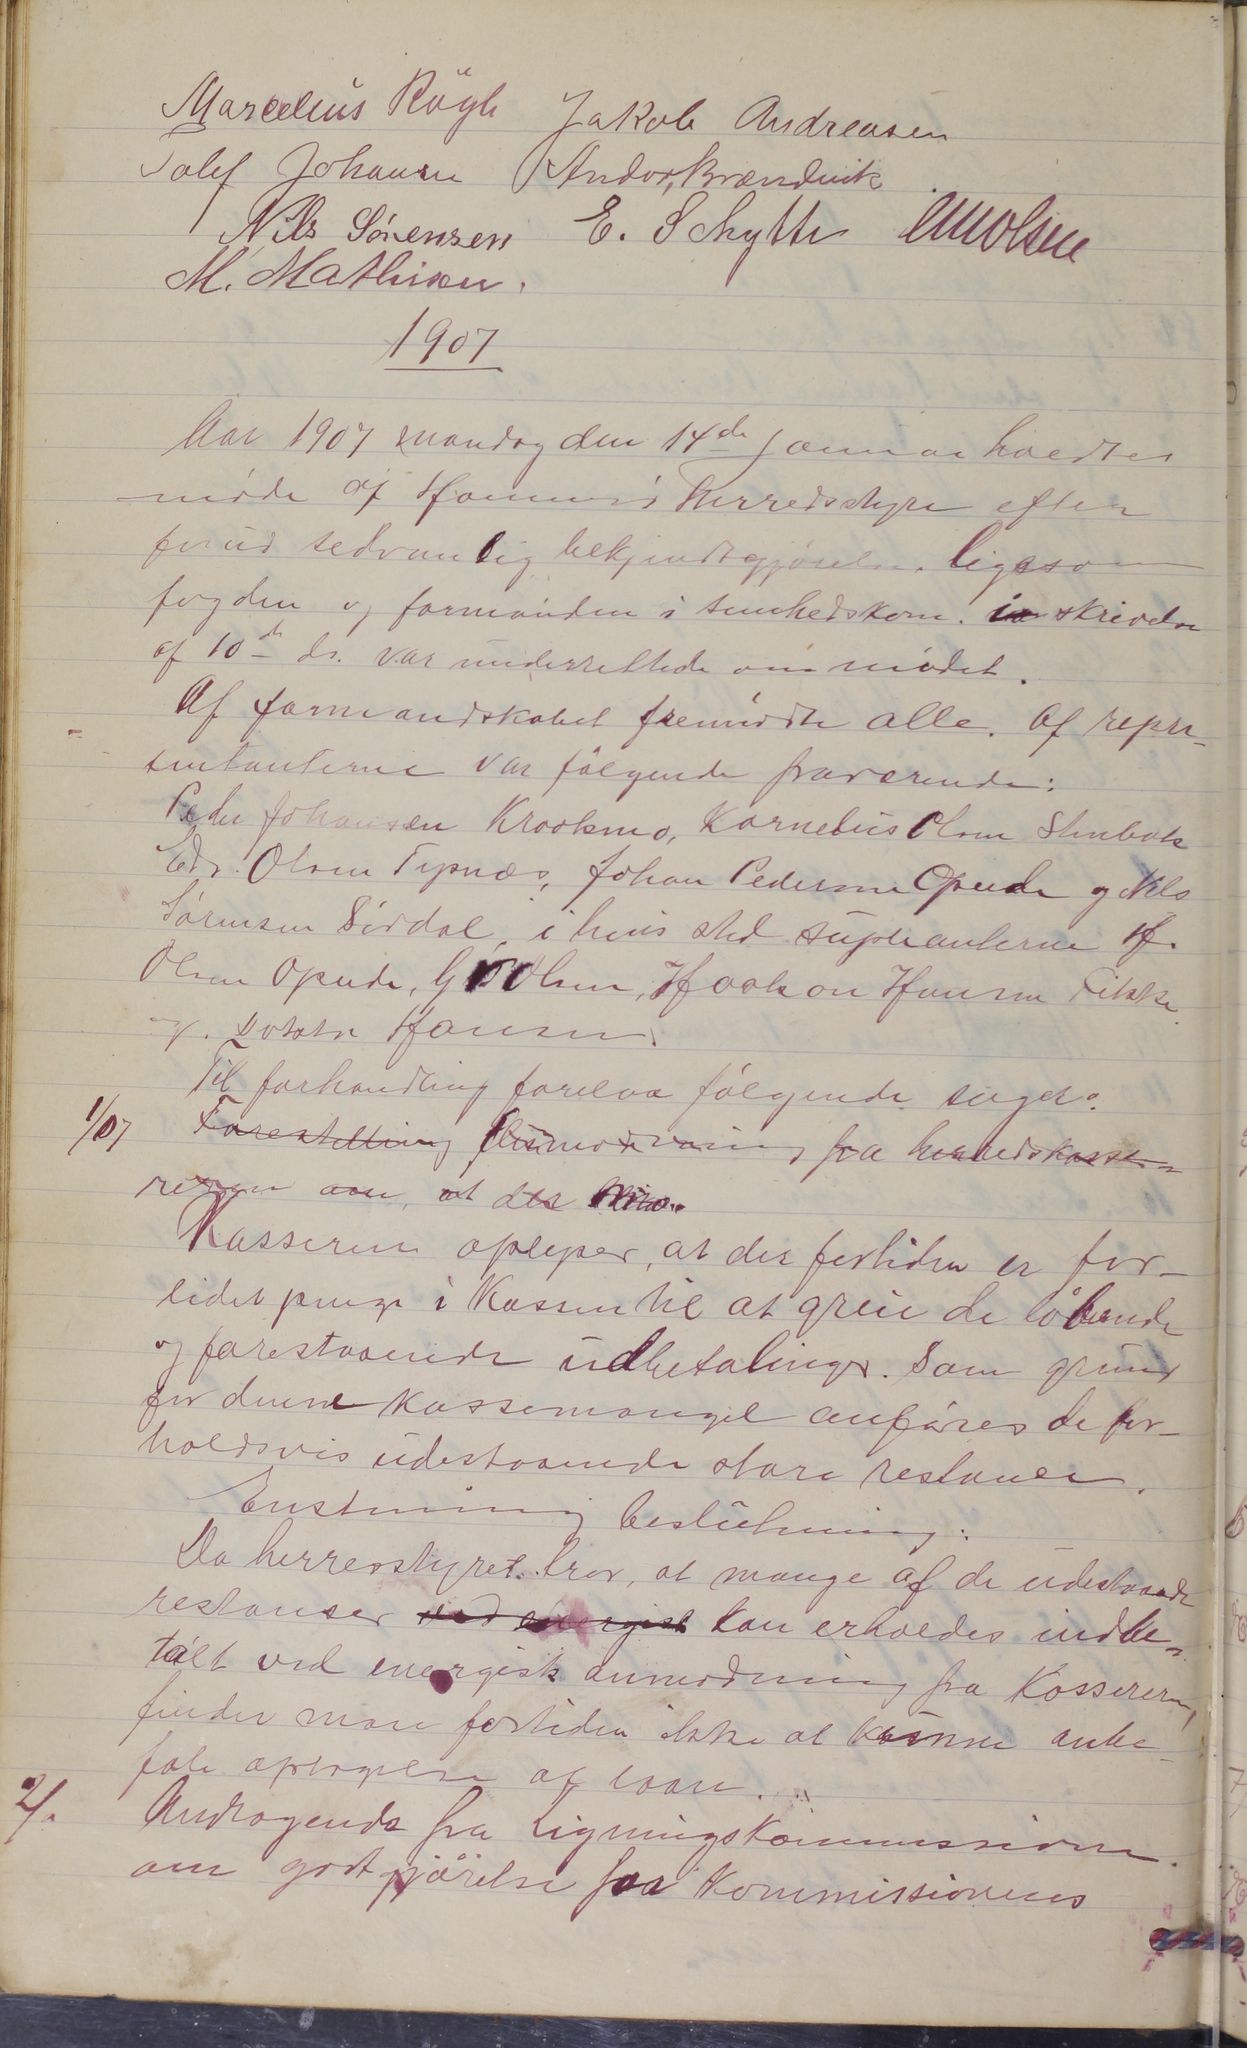 Marcelius Rögh Jakob Andreasen
Tolef Johansen Andor Brændvik
Nils Sørensen E. Schytte Olsen
M. Mathisen.
1907
Aar 1907 mandag den 14de Januar holdtes
møde af Hemnes Herredsstyre efter
forud sedvanlig bekjendtgjørelse, ligesom
fogden og formanden i sundhedskom. i skrivelse
af 10de ds. var underrettede om mødet.
Af formandskabet fremmødte alle. Af repræ-
sentanterne var følgende fraværende:
Peder Johansen Krookmo, Kornelius Olsen Stenbak
Edv. Olsen Typnæs, Johan Pedersen Opeide og Nils
Sørensen Sørdal, i hvis sted suppleanterne H.
Olsen Opeide, G Olsen, Haakon Hansen
og Hansen.
Til forhandling forelaa følgende sager:
1/07 Forestilling Anmodning fra herredskasse-
reren om, at der
Kassereren oplyser, at der fortiden er for-
lidet penge i Kassen til at greie de løbende
og forestaaende udbetalinger. Som grund
for denne kassemangel anføres de for-
holdsvis udestaaende store restancer.
Enstemmig beslutning:
Da herredsstyret tror, at mange af de udestaaende
restanser ved energisk kan erholdes indbe-
talt ved energisk anmodning fra Kassereren,
finder man fortiden ikke at kunne anbe-
fale optagelse af laan.
2/. Andragende fra Ligningskommissionen
om godtgjørelse for Kommissionens